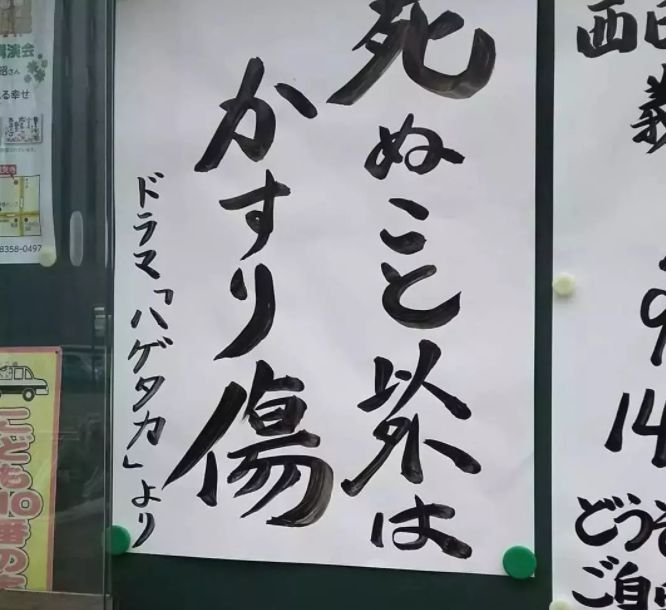 死ぬこと以外は
かすり傷
ドラマ「ハゲタカ」より
講演会
昭さん
る幸せ
8358-0497
こども110番の
西
義
9
14
どうぞ
ご自